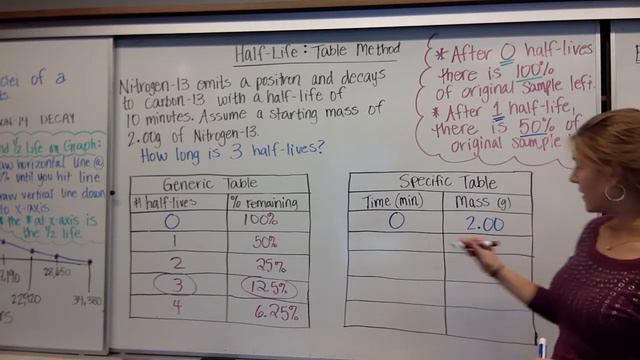 Half-Life: Table Method
Nitrogen-13 emits a positron and decays
to Carbon-13 with a half-life of
10 minutes. Assume a starting mass of
2.00g of Nitrogen-13.
How long is 3 half-lives?
* After 0 half-lives
there is 100%
of original sample left.
* After 1 half-life,
there is 50% of
original sample
Generic Table
# half-lives % remaining
0 100%
1 50%
2 25%
3 12.5%
4 6.25%
Specific Table
Time (min) Mass (g)
0 2.00
of a
14 DECAY
1/2 Life on Graph:
horizontal line @
until you hit line
vertical line down
to x-axis
* the # at x-axis is
the 1/2 life
22,920
28,650
34,380